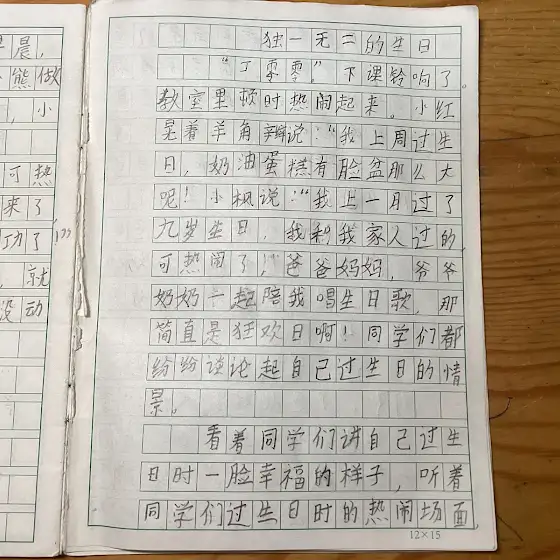 独一无二的生日
"丁零零",下课铃响了。
教室里顿时热闹起来。小红
晃着羊角辫说:"我上周过生
日,奶油蛋糕有脸盆那么大
呢!小枫说:"我上一月过了
九岁生日,我和我家人过的,
可热闹了,爸爸妈妈,爷爷
奶奶一起陪我唱生日歌,那
简直是狂欢日啊!同学们都
纷纷谈论起自己过生日的情
景。
看着同学们讲自己过生
日时一脸幸福的样子,听着
同学们过生日时的热闹场面,
12×15
晨,
熊做
,小
可热
来了,
功了!"
,就
没动